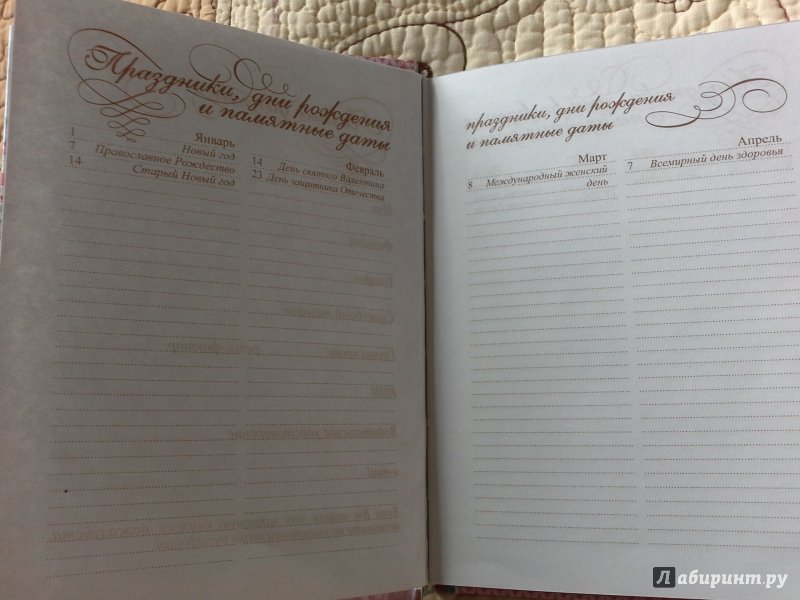 Праздники, дни рождения
и памятные даты
Январь
1 Новый год
7 Православное Рождество
14 Старый Новый год
Февраль
14 День святого Валентина
23 День защитника Отечества
праздники, дни рождения
и памятные даты
Март
8 Международный женский
день
Апрель
7 Всемирный день здоровья
Лабиринт.ру